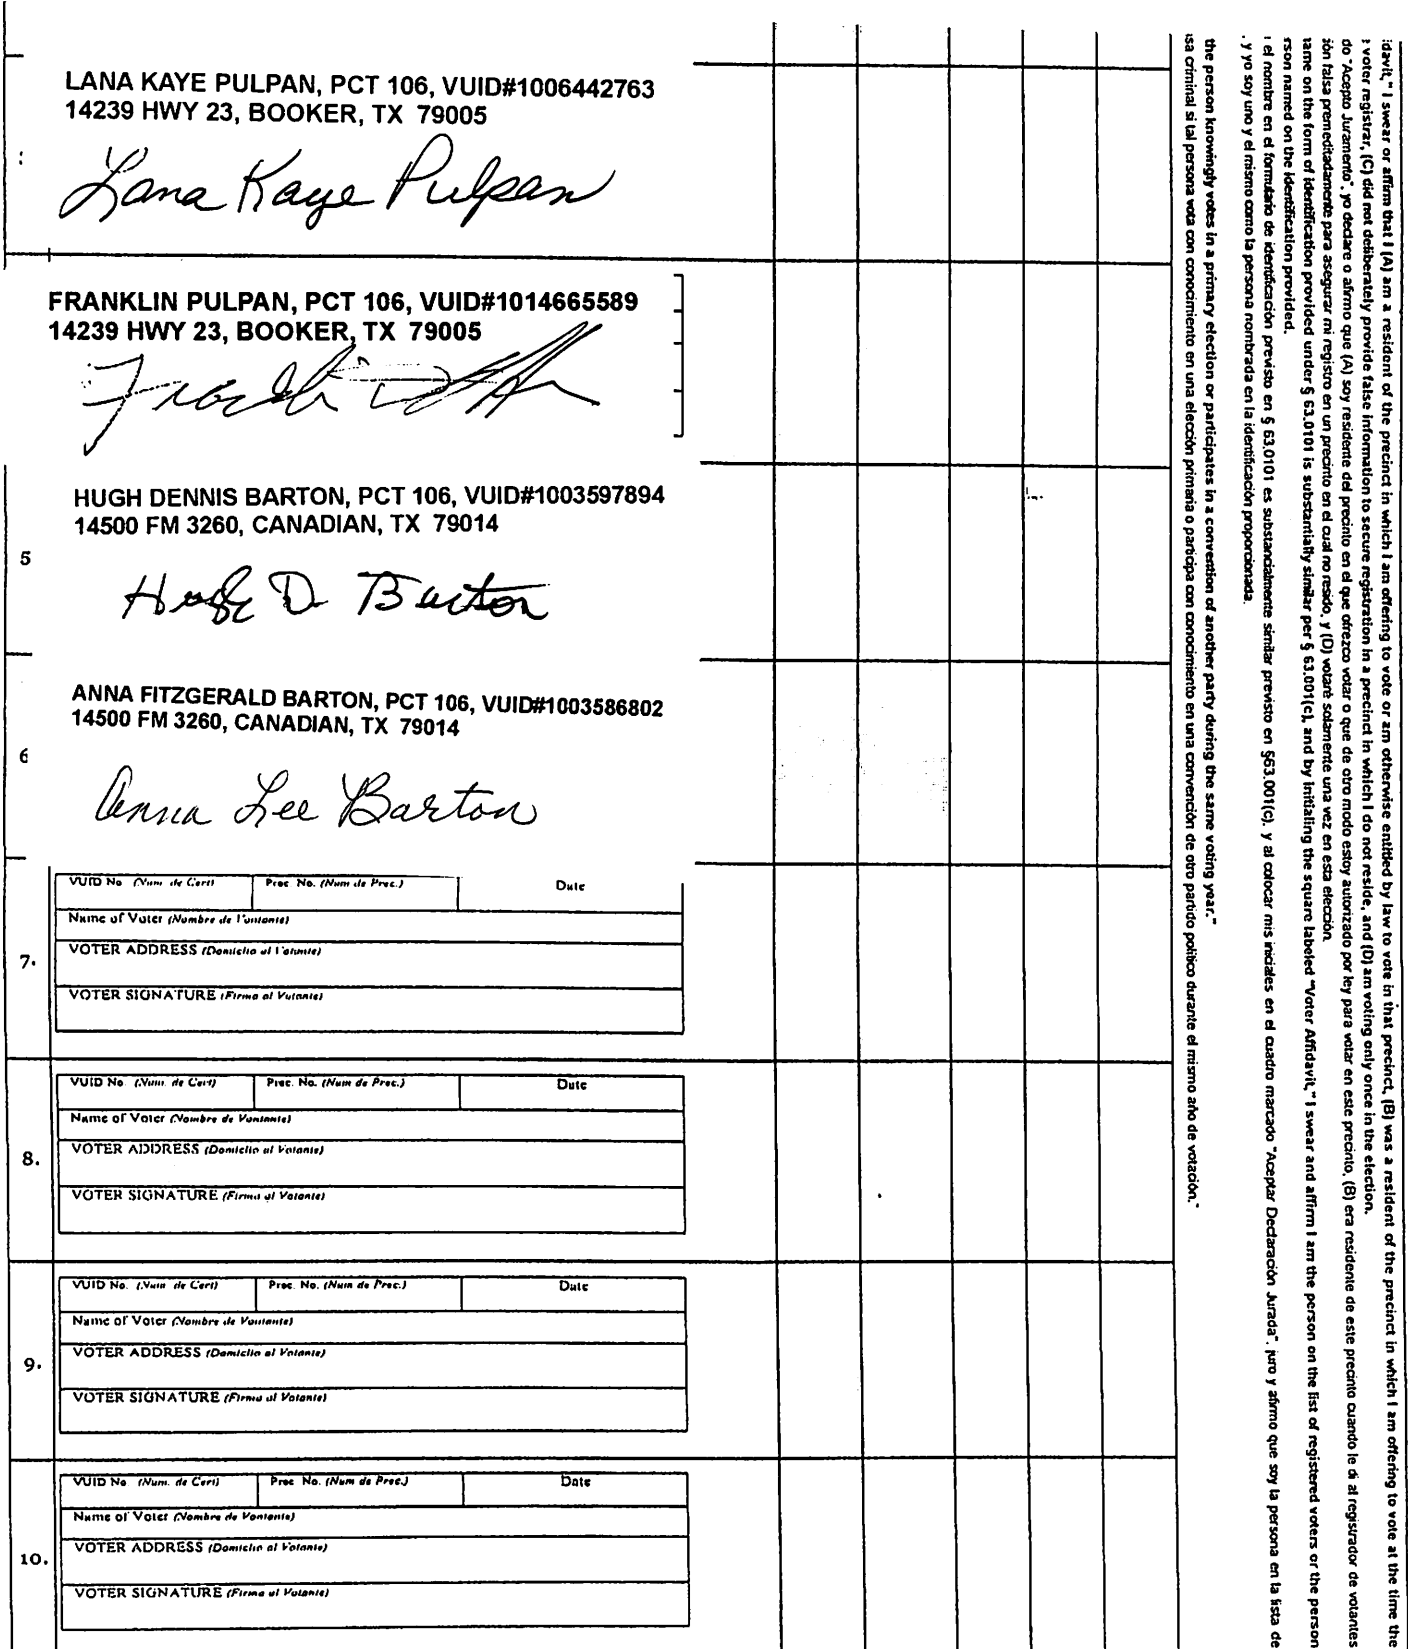 LANA KAYE PULPAN, PCT 106, VUID#1006442763
14239 HWY 23, BOOKER, TX 79005
Lana Kaye Pulpan
FRANKLIN PULPAN, PCT 106, VUID#1014665589
14239 HWY 23, BOOKER, TX 79005
HUGH DENNIS BARTON, PCT 106, VUID#1003597894
14500 FM 3260, CANADIAN, TX 79014
5
Hugh D. Barton
ANNA FITZGERALD BARTON, PCT 106, VUID#1003586802
14500 FM 3260, CANADIAN, TX 79014
6
Anna Lee Barton
VUID No. (Num. de Cert) Prec. No. (Num de Prec.) Date
Name of Voter (Nombre de Vontante)
7.
VOTER ADDRESS (Domicilio al Votante)
VOTER SIGNATURE (Firma al Votante)
VUID No. (Num. de Cert) Prec. No. (Num de Prec.) Date
Name of Voter (Nombre de Vontante)
8.
VOTER ADDRESS (Domicilio al Votante)
VOTER SIGNATURE (Firma al Votante)
VUID No. (Num de Cert) Prec. No. (Num de Prec.) Date
Name of Voter (Nombre de Vontante)
9.
VOTER ADDRESS (Domicilio al Votante)
VOTER SIGNATURE (Firma al Votante)
VUID No. (Num. de Cert) Prec No. (Num de Prec.) Date
Name of Voter (Nombre de Vontante)
10.
VOTER ADDRESS (Domicilio al Votante)
VOTER SIGNATURE (Firma al Votante)
idavit," I swear or affirm that I (A) am a resident of the precinct in which I am offering to vote or am otherwise entitled by law to vote in that precinct, (B) was a resident of the precinct in which I am offering to vote at the time the
voter registrar, (C) did not deliberately provide false information to secure registration in a precinct in which I do not reside, and (D) am voting only once in the election.
do "Acepto Juramento", yo declare o afirmo que (A) soy residente del precinto en el que ofrezco votar o que de otro modo estoy autorizado por ley para votar en este precinto, (B) era residente de este precinto cuando le di al registrador de votantes
ión falsa premeditadamente para asegurar mi registro en un precinto en el cual no resido, y (D) votaré solamente una vez en esta elección.
name on the form of identification provided under § 63.0101 is substantially similar per § 63.001(c), and by initialing the square labeled "Voter Affidavit," I swear and affirm I am the person on the list of registered voters or the person
rson named on the identification provided.
el nombre en el formulario de identificación previsto en § 63.0101 es substancialmente similar previsto en §63.001(c). y al colocar mis iniciales en el cuadro marcado "Aceptar Declaración Jurada". juro y afirmo que soy la persona en la lista de
. y yo soy uno y el mismo como la persona nombrada en la identificación proporcionada.
the person knowingly votes in a primary election or participates in a convention of another party during the same voting year."
usa criminal si tal persona vota con conocimiento en una elección primaria o participa con conocimiento en una convención de otro partido político durante el mismo año de votación."